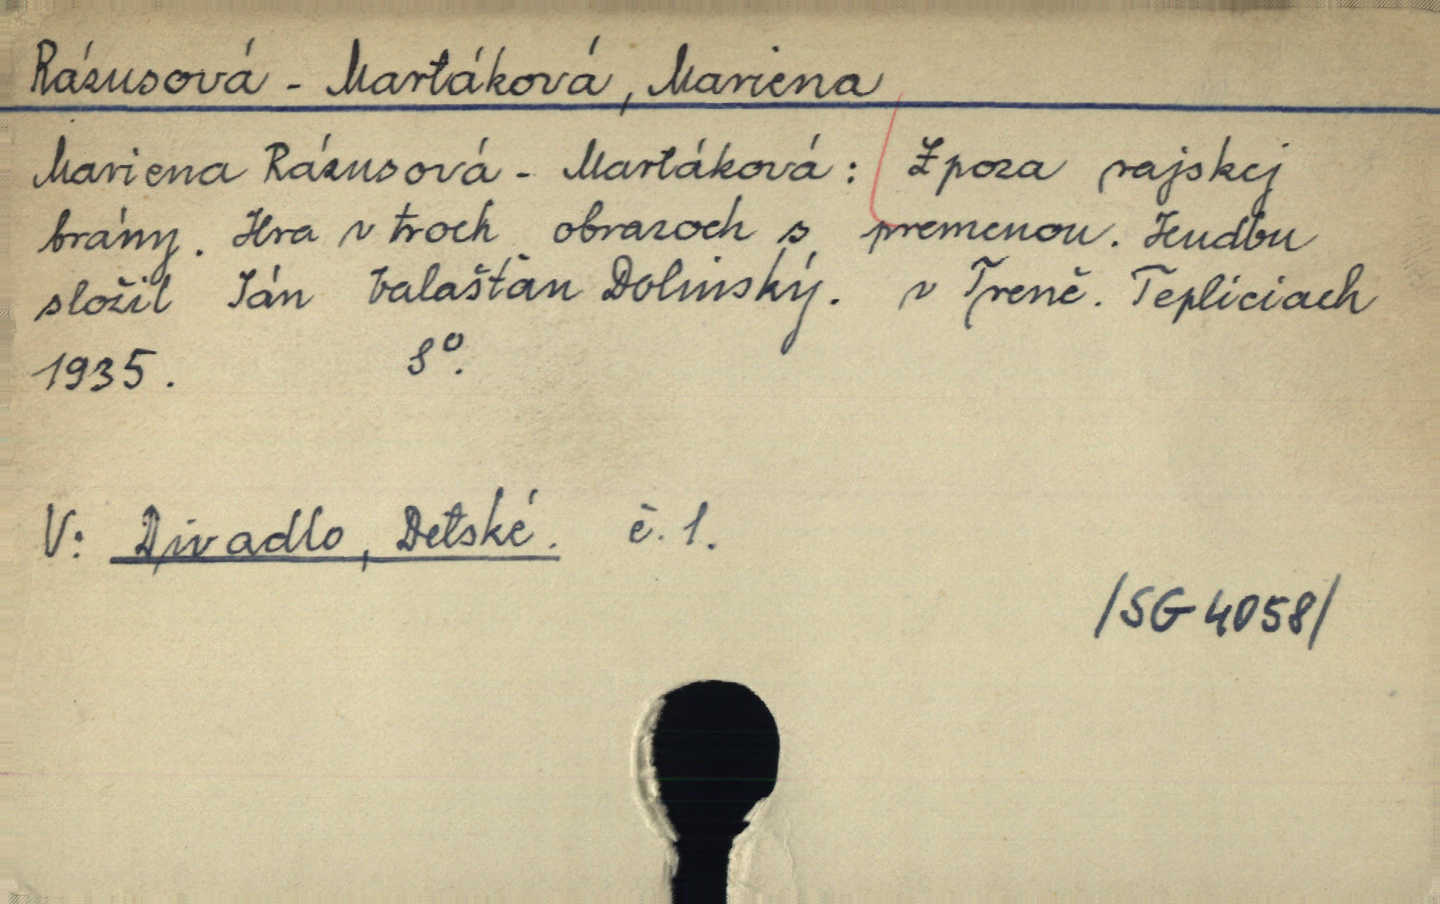 Rázusová - Martáková, Mariena
Mariena Rázusová - Martáková: Zpoza rajskej
brány. Hra v troch obrazoch s premenou. Hudbu
složil Ján Valašťan Dolinský. v Trenč. Tepliciach
1935. 8°.
V: Divadlo, Detské. č. 1.
/SG 4058/